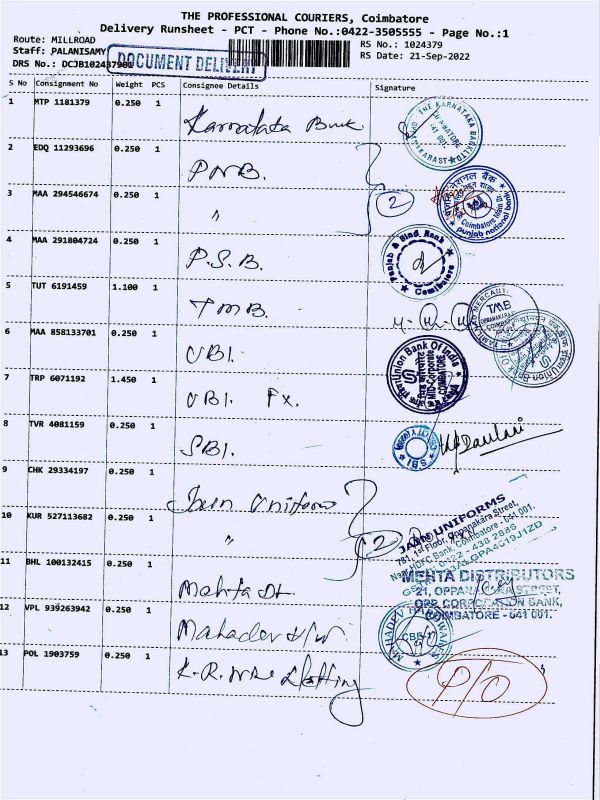 THE PROFESSIONAL COURIERS, Coimbatore
Delivery Runsheet - PCT - Phone No.:0422-3505555 - Page No.:1
Route: MILLROAD RS No.: 1024379
Staff: PALANISAMY RS Date: 21-Sep-2022
DRS No.: DCJB102437901
DOCUMENT DELIVERY
S No Consignment No Weight PCS Consignee Details Signature
1 MTP 1181379 0.250 1
Karnataka Bank
2 EDQ 11293696 0.250 1
PNB.
3 MAA 294546674 0.250 1
" 2
4 MAA 291804724 0.250 1
P.S.B.
5 TUT 6191459 1.100 1
TMB.
6 MAA 858133701 0.250 1
UBI.
7 TRP 6071192 1.450 1
UBI. Fx.
8 TVR 4081159 0.250 1
SBI.
9 CHK 29334197 0.250 1
Jain Uniforms
10 KUR 527113682 0.250 1
" 2
JAIN UNIFORMS
781, 1st Floor, Oppanakara Street,
Near HDFC Bank, Coimbatore - 641 001.
11 BHL 100132415 0.250 1
Mehta Dt.
MEHTA DISTRIBUTORS
21, OPPANAKARA STREET,
OPP. CORPORATION BANK,
COIMBATORE - 641 001.
12 VPL 939263942 0.250 1
Mahadev H/W
MAHADEV HARDWARES
CBE-1
13 POL 1903759 0.250 1
K.R.
P/O
THE KARNATAKA BANK LTD
पंजाब नैशनल बैंक
punjab national bank
Punjab & Sind Bank
Coimbatore
TMB
Union Bank Of India
SBI